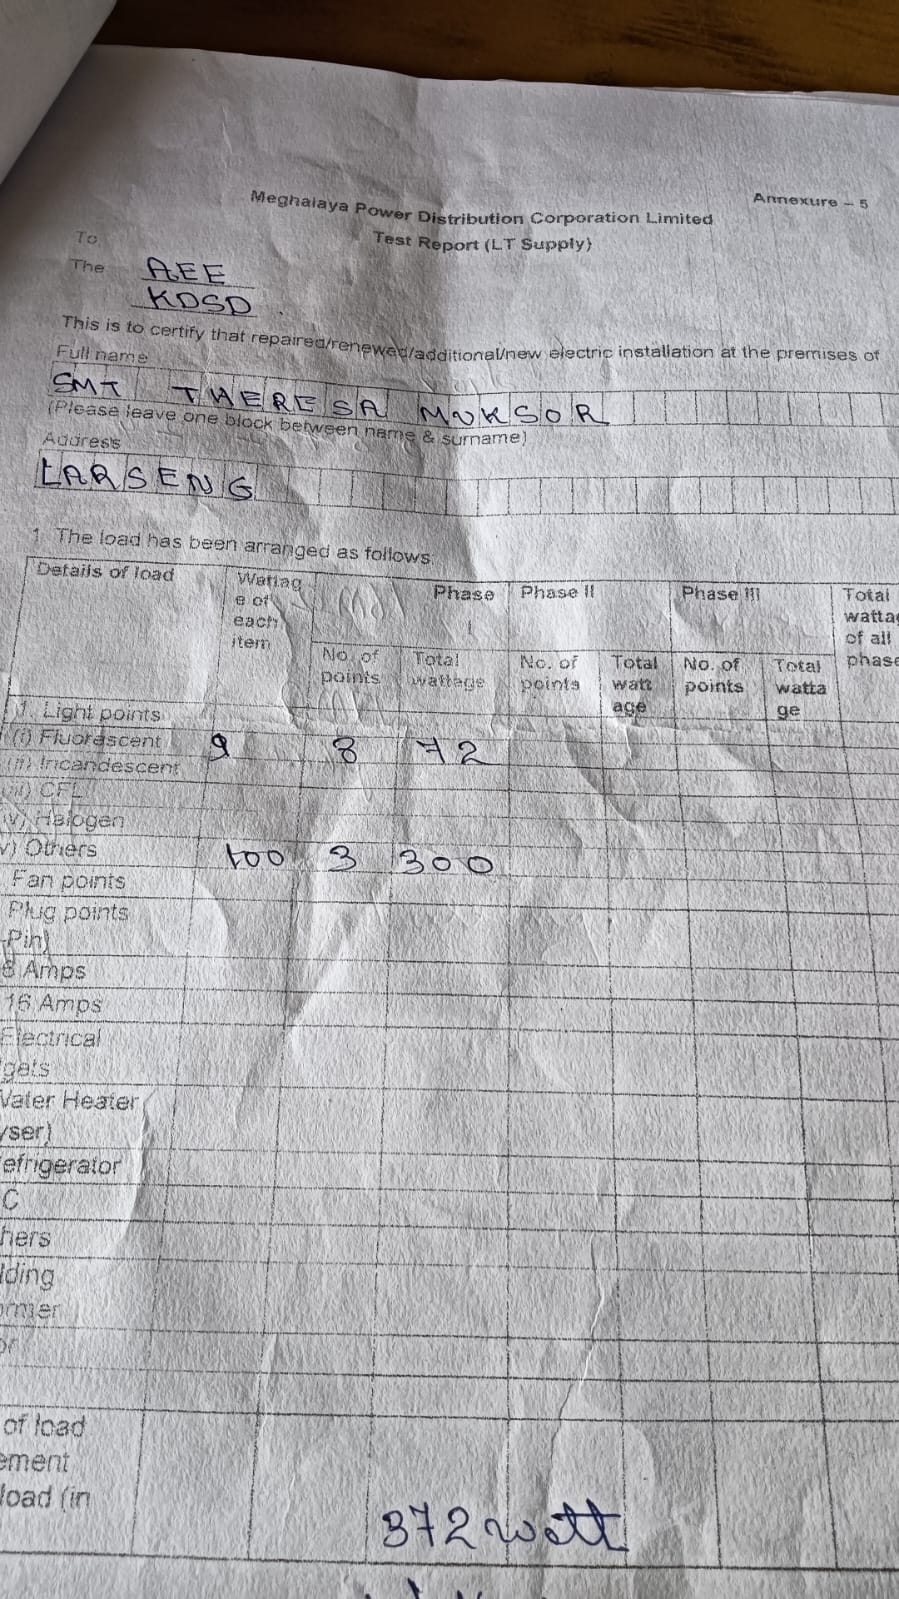 Annexure - 5
Meghalaya Power Distribution Corporation Limited
Test Report (LT Supply)
To
The AEE
KDSD
This is to certify that repaired/renewed/additional/new electric installation at the premises of
Full name
SMT THERESA MUKSOR
(Please leave one block between name & surname)
Address
LARSENG
1. The load has been arranged as follows:
Details of load Wattag e of each item Phase I Phase II Phase III Total watta of all phase
No. of points Total wattage No. of points Total watt age No. of points Total watta ge
1. Light points
(i) Fluorescent 9 8 72
(ii) Incandescent
(iii) CFL
iv) Halogen
v) Others 100 3 300
Fan points
Plug points
Pin)
8 Amps
16 Amps
Electrical
gets
Water Heater
yser)
efrigerator
C
hers
lding
ormer
or
of load
ement
load (in
372 watt